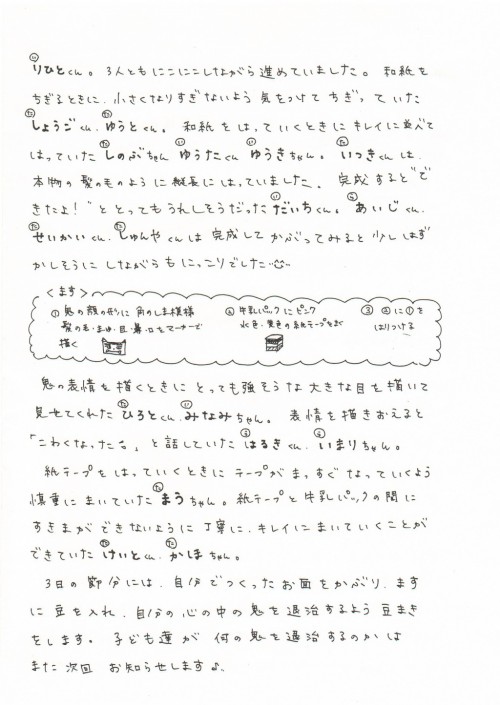 りひとくん。3人ともにこにこしながら進めていました。和紙を
ちぎるときに、小さくなりすぎないよう気をつけてちぎっていた
しょうごくん、ゆうとくん。和紙をはっていくときにキレイに並べて
はっていたしのぶちゃん ゆうたくん ゆうきちゃん。いつきくんは、
本物の髪の毛のように縦長にはっていました。完成すると"で
きたよ!"ととってもうれしそうだっただいちくん。あいじくん、
せいかいくん、しゅんやくんは完成してかぶってみると少しはず
かしそうにしながらもにっこりでした
<ます>
① 鬼の顔の形に角のしま模様
髪の毛・まゆ・目・鼻・口をマーカーで
描く
② 牛乳パックにピンク
水色・黄色の紙テープをまく
③ ②に①を
はりつける
鬼の表情を描くときにとっても強そうな大きな目を描いて
見せてくれたひろとくん、みなみちゃん。表情を描きおえると
「こわくなったな。」と話していたはるきくん、いまりちゃん。
紙テープをはっていくときにテープがまっすぐなっていくよう
慎重にまいていたまうちゃん。紙テープと牛乳パックの間に
すきまができないように丁寧に、キレイにまいていくことが
できていたけいとくん、かほちゃん。
3日の節分には、自分でつくったお面をかぶり、ます
に豆を入れ、自分の心の中の鬼を退治するよう豆まき
をします。子ども達が何の鬼を退治するのかは
また次回 お知らせします♪。